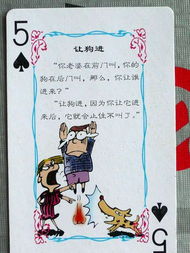 5
让狗进
“你老婆在前门叫，你的
狗在后门叫，那么，你让谁
进来？”
“让狗进，因为你让它进
来后，它就会止住不叫了。”
5